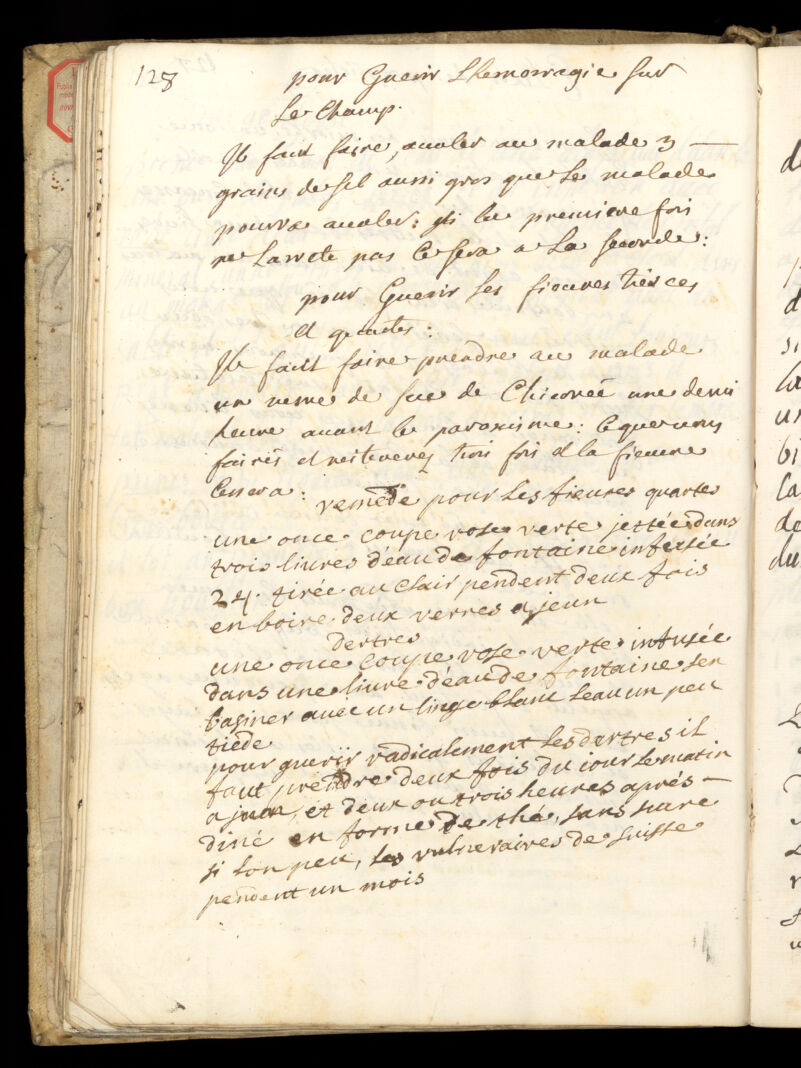 128
pour Guerir LHemorragie sur
Le Champ.
Il faut faire, avaler au malade 3
grains de sel aussi gros que Le malade
pourra avaler: si la premiere fois
ne Larrete pas Ce sera a La seconde:
pour Guerir Les fievres tierces
et quartes:
Il faut faire prendre au malade
un verre de suc de Chicorée une demi
heure avant le paroxisme: Ce que vous
fairés et reitererez trois fois et la fievre
Cessera:
remede pour Les fievres quartes
une once coupe rose verte jettée dans
trois livres d'eau de fontaine infusée
24. tirée au clair pendent deux fois
en boire deux verres a jeun
dertres
une once coupe rose verte infusée
dans une livre d'eau de fontaine sen
basiner avec un linge blanc Leau un peu
tiede
pour guerir radicalement Les dartres il
faut prendre deux fois du iour Le matin
a jeun, et deux ou trois heures aprés
diné en forme de thé, sans sucre
si lon peu, Les vulneraires de suisse
pendent un mois